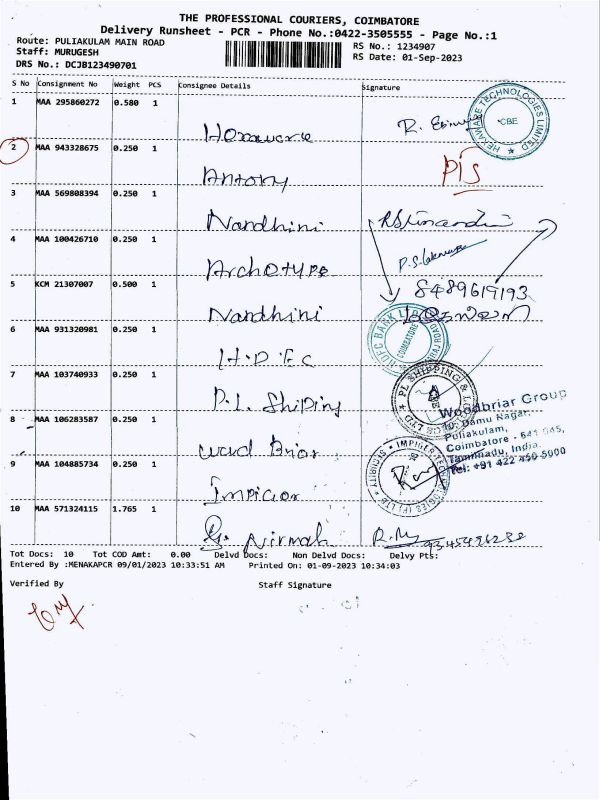 THE PROFESSIONAL COURIERS, COIMBATORE
Delivery Runsheet - PCR - Phone No.:0422-3505555 - Page No.:1
Route: PULIAKULAM MAIN ROAD
Staff: MURUGESH
DRS No.: DCJB123490701
RS No.: 1234907
RS Date: 01-Sep-2023
S No Consignment No Weight PCS Consignee Details Signature
1 MAA 295860272 0.580 1
HEXAWARE TECHNOLOGIES LIMITED
CBE
2 MAA 943328675 0.250 1 Antony
3 MAA 569808394 0.250 1 Nandhini
4 MAA 100426710 0.250 1 Archetype
8489619193
5 KCM 21307007 0.500 1 Nandhini
HDFC BANK LTD
COIMBATORE
6 MAA 931320981 0.250 1 H.D.F.C
7 MAA 103740933 0.250 1 P.L. Shiping
PL SHIPPING &
8 MAA 106283587 0.250 1 Wood Briar
Woodbriar Group
Damu Nagar,
Puliakulam,
Coimbatore - 641 045,
Tamilnadu, India.
Tel: +91 422 450 5000
9 MAA 104885734 0.250 1
10 MAA 571324115 1.765 1 Nirmal
Tot Docs: 10 Tot COD Amt: 0.00 Delvd Docs: Non Delvd Docs: Delvy Pts:
Entered By :MENAKAPCR 09/01/2023 10:33:51 AM Printed On: 01-09-2023 10:34:03
Verified By Staff Signature